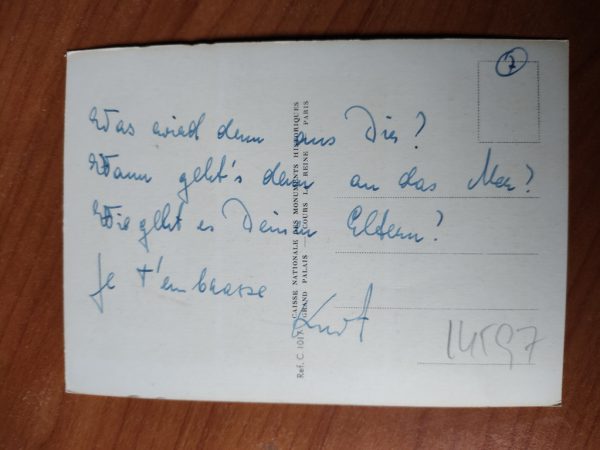 7
Was wird denn aus Dir?
Wann geht's denn an das Meer?
Wie geht es Deinen Eltern?
Je t'embrasse
Kurt
14597
Ref. C 101
CAISSE NATIONALE DES MONUMENTS HISTORIQUES
GRAND PALAIS COURS LA REINE PARIS